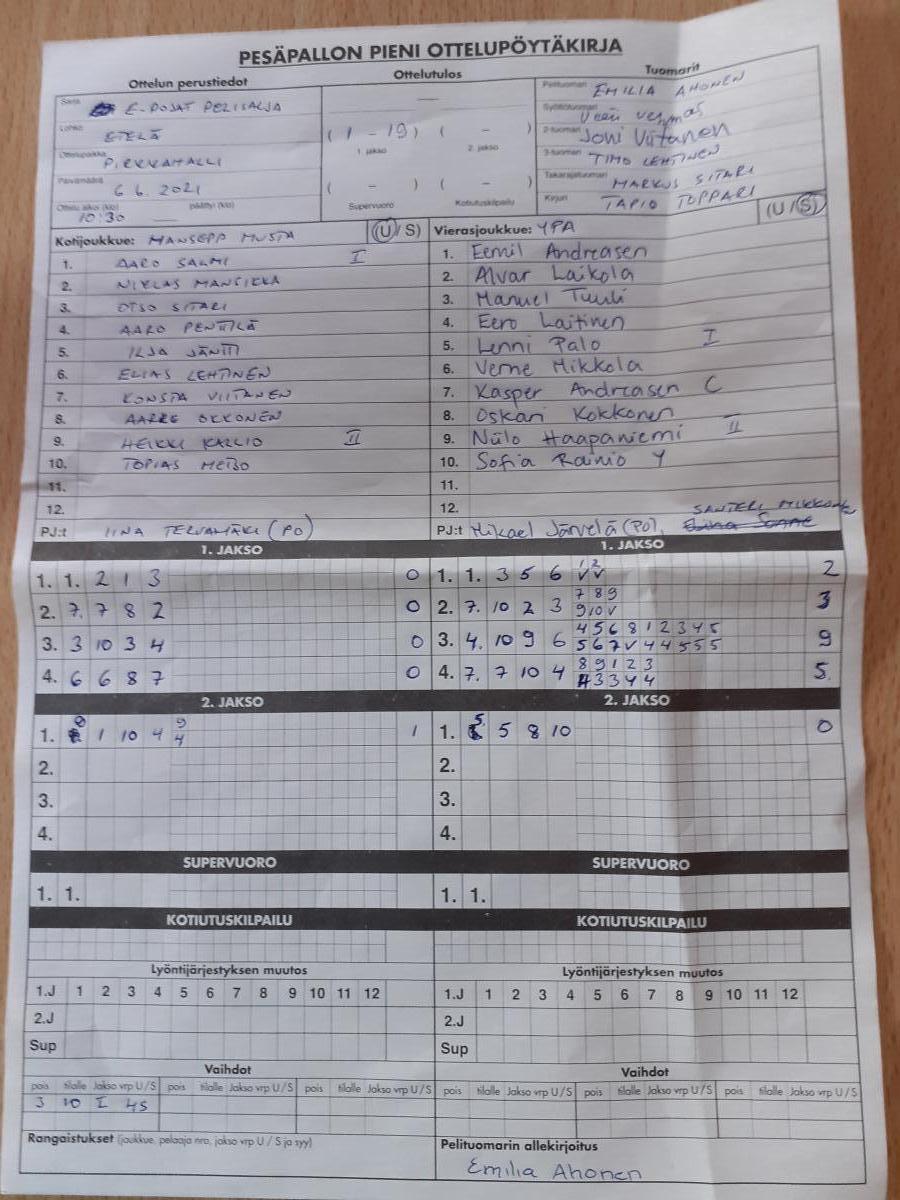 PESÄPALLON PIENI OTTELUPÖYTÄKIRJA
Ottelun perustiedot Ottelutulos Tuomarit
Sarja E-POJAT PERUSARJA
Lohko ETELÄ
Ottelupaikka PIRKKAHALLI
Päivämäärä 6 6. 2021
Ottelu alkoi (klo) päättyi (klo)
10:30
—
( 1 - 19 ) ( - )
1. jakso 2. jakso
( - ) ( - )
Supervuoro Kotiutuskilpailu
Pelituomari EMILIA AHONEN
Syöttötuomari
2-tuomari Joni Viitanen
3-tuomari TIMO LEHTINEN
Takarajatuomari MARKUS SITARI
Kirjuri TAPIO TOPPARI
Kotijoukkue: MANSEPP MUSTA (U/S)
1. AARO SALMI I
2. NIKLAS MANSIKKA
3. OTSO SITARI
4. AARO PENTTILÄ
5. ILJA JÄNTTI
6. ELIAS LEHTINEN
7. KONSTA VIITANEN
8. AARRE OKKONEN
9. HEIKKI KALLIO II
10. TOPIAS
11.
12.
PJ:t IINA TERVAMÄKI (PO)
Vierasjoukkue: YPA (U/S)
1. Eemil Andreasen
2. Alvar Laikola
3. Manuel Tuuli
4. Eero Laitinen
5. Lenni Palo I
6. Verne Mikkola
7. Kasper Andreasen C
8. Oskari Kokkonen
9. Niilo Haapaniemi II
10. Sofia Rainio Y
11.
12.
SANTERI MIKKOLA
PJ:t Mikael Järvelä (PO),
1. JAKSO
1. 1. 2 1 3 0
2. 7. 7 8 2 0
3. 3 10 3 4 0
4. 6 6 8 7 0
1. JAKSO
1 2
1. 1. 3 5 6 V V 2
7 8 9
2. 7. 10 2 3 9 10 V 3
4 5 6 8 1 2 3 4 5
3. 4. 10 9 6 5 6 7 V 4 4 5 5 5 9
8 9 1 2 3
4. 7. 7 10 4 4 3 3 4 4 5.
2. JAKSO
9
1. 8 1 10 4 4 1
2.
3.
4.
2. JAKSO
1. 5. 5 8 10 0
2.
3.
4.
SUPERVUORO SUPERVUORO
1. 1. 1. 1.
KOTIUTUSKILPAILU KOTIUTUSKILPAILU
Lyöntijärjestyksen muutos Lyöntijärjestyksen muutos
1.J 1 2 3 4 5 6 7 8 9 10 11 12 1.J 1 2 3 4 5 6 7 8 9 10 11 12
2.J 2.J
Sup Sup
Vaihdot Vaihdot
pois tilalle Jakso vrp U/S pois tilalle Jakso vrp U/S pois tilalle Jakso vrp U/S pois tilalle Jakso vrp U/S pois tilalle Jakso vrp U/S pois tilalle Jakso vrp U/S
3 10 I 4S
Rangaistukset (joukkue, pelaaja nro, jakso vrp U / S ja syy) Pelituomarin allekirjoitus
Emilia Ahonen